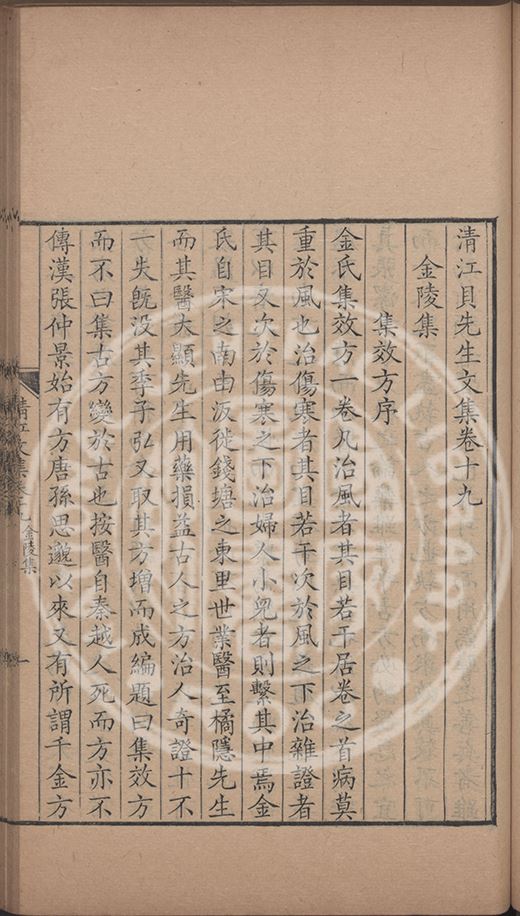 清江貝先生文集卷十九
金陵集
集效方序
金氏集效方一卷凡治風者其目若干居卷之首病莫
重於風也治傷寒者其目若干次於風之下治雜證者
其目又次於傷寒之下治婦人小兒者則繫其中焉金
氏自宋之南由汳徙錢塘之東里世業醫至橘隱先生
而其醫大顯先生用藥損益古人之方治人奇證十不
一失既没其季子弘又取其方增而成編題曰集效方
而不曰集古方變於古也按醫自秦越人死而方亦不
傳漢張仲景始有方唐孫思邈以來又有所謂千金方
清江文集卷十九 金陵集